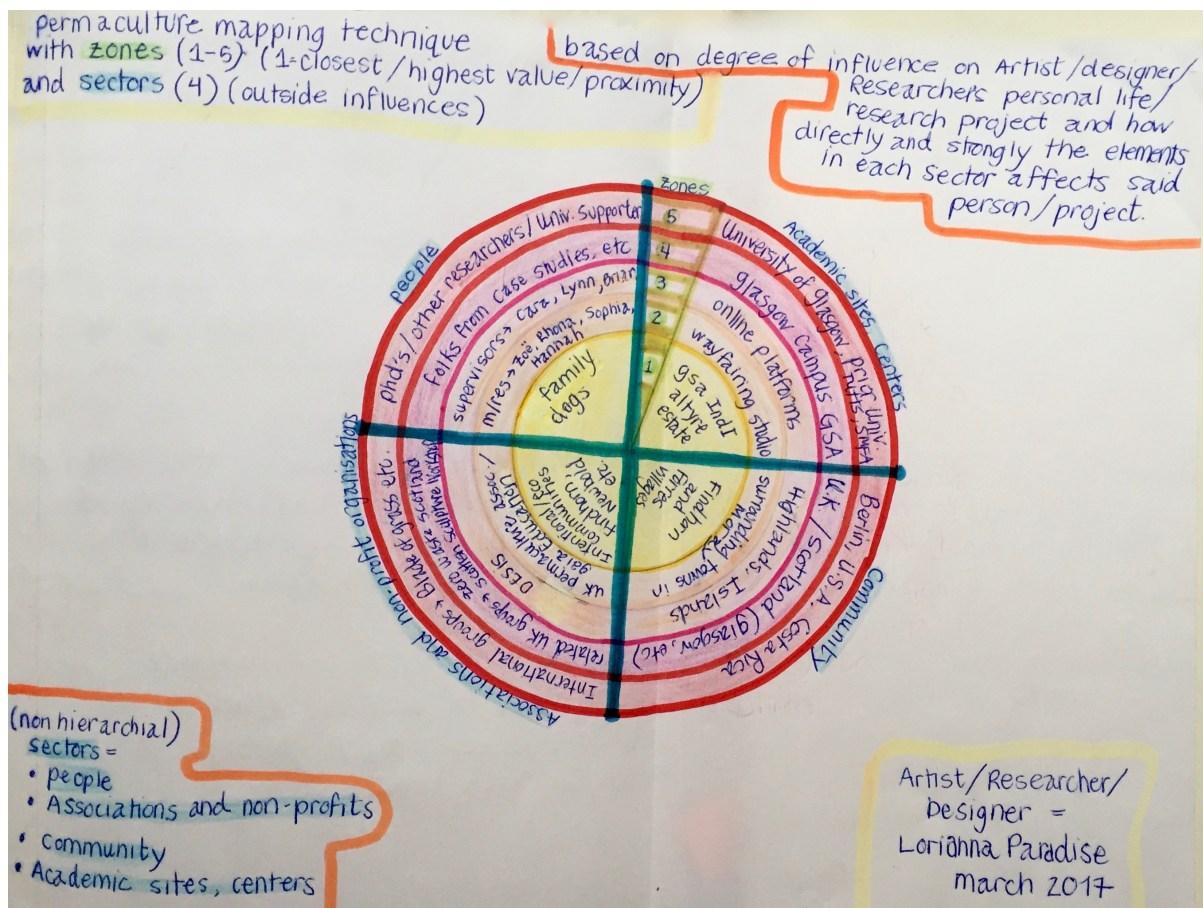 permaculture mapping technique
with zones (1-5) (1=closest/highest value/proximity)
and sectors (4) (outside influences)
based on degree of influence on Artist/designer/
Researchers personal life/
research project and how
directly and strongly the elements
in each sector affects said
person/project.
zones
5
4
3
2
1
people
phd's/other researchers/univ. supporter
folks from case studies, etc
supervisors→ Cara, Lynn, Brian
m/res→ Zoë, Rhona, Sophia,
Hannah
family
dogs
Academic sites, centers
University of glasgow, Univ.
tufts, SMFA
glasgow campus GSA
online platforms
wayfairing studio
gsa IndI
altyre
estate
Community
Berlin, U.S.A. Costa Rica
U.K/Scotland (glasgow, etc)
Highlands, Islands
surrounding towns in
moray
Findhorn
and
forres
villages
Associations and non-profit organisations
International groups→ Blade of grass etc.
related UK groups→ zero waste Scotland
DESIS
uk permaculture assoc./
gaia Education
Intentional/Eco
communities
findhorn,
Newbold
etc.
(non hierarchial)
sectors =
• people
• Associations and non-profits
• community
• Academic sites, centers
Artist/Researcher/
Designer =
Lorianna Paradise
march 2017